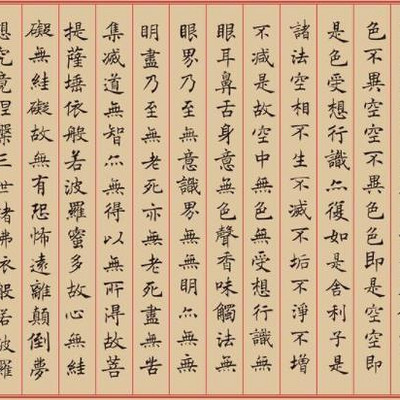 色不異空空不異色色即是空空即
是色受想行識尒復如是舍利子是
諸法空相不生不滅不垢不淨不增
不減是故空中無色無受想行識無
眼耳鼻舌身意無色聲香味觸法無
眼界乃至無意識界無無明尒無無
明盡乃至無老死亦無老死盡無苦
集滅道無智尒無得以無所得故菩
提薩埵依般若波羅蜜多故心無絓
礙無絓礙故無有恐怖遠離顛倒夢
想究竟涅槃三世諸佛依般若波羅